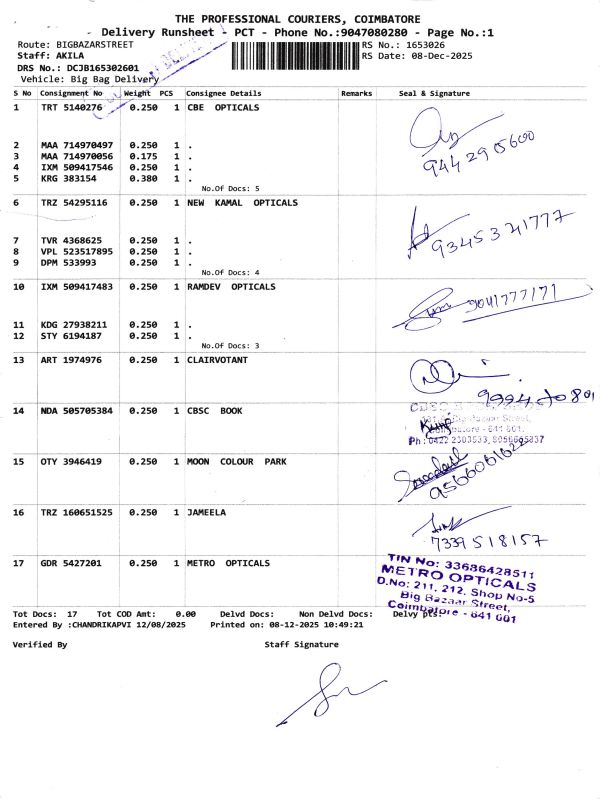 THE PROFESSIONAL COURIERS, COIMBATORE
Delivery Runsheet - PCT - Phone No.:9047080280 - Page No.:1
Route: BIGBAZARSTREET RS No.: 1653026
Staff: AKILA RS Date: 08-Dec-2025
DRS No.: DCJB165302601
Vehicle: Big Bag Delivery
S No Consignment No Weight PCS Consignee Details Remarks Seal & Signature
1 TRT 5140276 0.250 1 CBE OPTICALS
9442905600
2 MAA 714970497 0.250 1 .
3 MAA 714970056 0.175 1 .
4 IXM 509417546 0.250 1 .
5 KRG 383154 0.380 1 .
No.Of Docs: 5
6 TRZ 54295116 0.250 1 NEW KAMAL OPTICALS
9345321777
7 TVR 4368625 0.250 1 .
8 VPL 523517895 0.250 1 .
9 DPM 533993 0.250 1 .
No.Of Docs: 4
10 IXM 509417483 0.250 1 RAMDEV OPTICALS
9041777171
11 KDG 27938211 0.250 1 .
12 STY 6194187 0.250 1 .
No.Of Docs: 3
13 ART 1974976 0.250 1 CLAIRVOTANT
14 NDA 505705384 0.250 1 CBSC BOOK
Big Bazaar Street,
Coimbatore - 641 001.
15 OTY 3946419 0.250 1 MOON COLOUR PARK
16 TRZ 160651525 0.250 1 JAMEELA
7339518157
17 GDR 5427201 0.250 1 METRO OPTICALS
TIN No: 33686428511
METRO OPTICALS
D.No: 211, 212, Shop No-5
Big Bazaar Street,
Coimbatore - 641 001
Tot Docs: 17 Tot COD Amt: 0.00 Delvd Docs: Non Delvd Docs: Delvy pts:
Entered By :CHANDRIKAPVI 12/08/2025 Printed on: 08-12-2025 10:49:21
Verified By Staff Signature